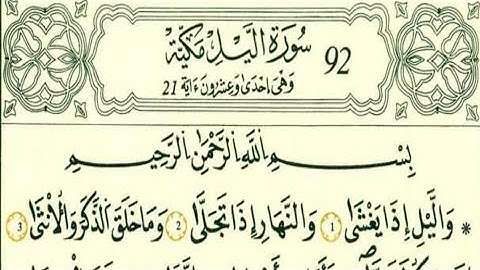 92 سُورَةُ الَّيْلِ مَكِّيَّة
وَهْيَ إِحْدَىٰ وَعِشْرُونَ ءَايَة 21
بِسْمِ اللَّهِ الرَّحْمَٰنِ الرَّحِيمِ
* وَالَّيْلِ إِذَا يَغْشَىٰ 1 وَالنَّهَارِ إِذَا تَجَلَّىٰ 2 وَمَا خَلَقَ الذَّكَرَ وَالْأُنثَىٰ 3